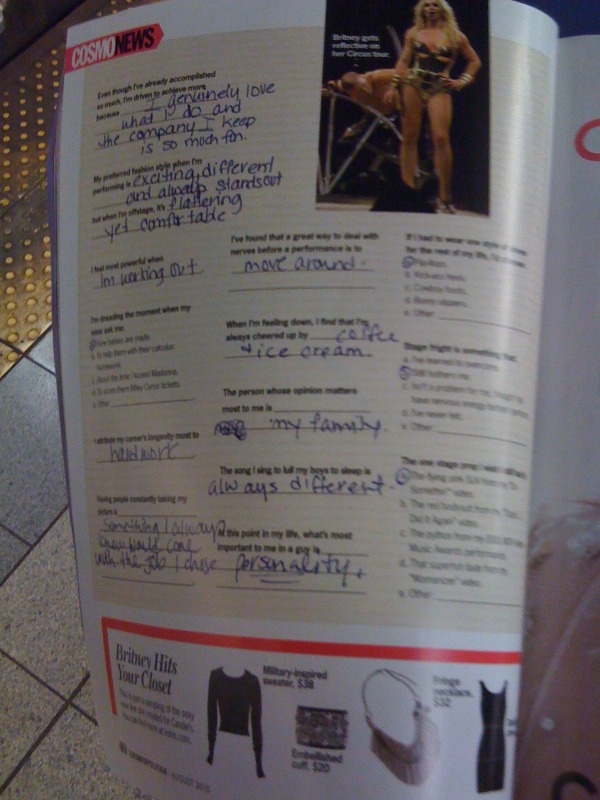 COSMONEWS
Britney gets
reflective on
her Circus tour.
Even though I've already accomplished
so much, I'm driven to achieve more
because I genuinely love
what I do and
the company I keep
is so much fun.
My preferred fashion style when I'm
performing is exciting, different
and always stands out
but when I'm offstage, it's flattering
yet comfortable
I feel most powerful when
I'm working out
I'm dreading the moment when my
sons ask me:
a. How babies are made.
b. To help them with their calculus
homework.
c. About the time I kissed Madonna.
d. To score them Miley Cyrus tickets.
e. Other
I attribute my career's longevity most to
hard work
Having people constantly taking my
picture is
something I always
knew would come
with the job I chose
I've found that a great way to deal with
nerves before a performance is to
move around.
When I'm feeling down, I find that I'm
always cheered up by coffee
+ ice cream.
The person whose opinion matters
most to me is
my family.
The song I sing to lull my boys to sleep is
always different.
At this point in my life, what's most
important to me in a guy is
personality.
If I had to wear one style of
for the rest of my life, I'd
a. Flip-flops.
b. Kick-ass heels.
c. Cowboy boots.
d. Bunny slippers.
e. Other
Stage fright is something that:
a. I've learned to overcome.
b. Still bothers me.
c. Isn't a problem for me, though I
have nervous energy before
d. I've never felt.
e. Other:
The one stage prop I wish I still had:
a. The flying
Something" video.
b. The red bodysuit from my "Oops...
Did It Again" video.
c. The python from my 2001
Music Awards performance.
d. That superhot dude from my
"Womanizer" video.
e. Other:
Britney Hits
Your Closet
This is just a sampling of the sexy
new line she created for Candie's.
You can find more at kohls.com.
Military-inspired
sweater, $38
Embellished
cuff, $20
Fringe
necklace,
$32
COSMOPOLITAN AUGUST 2010